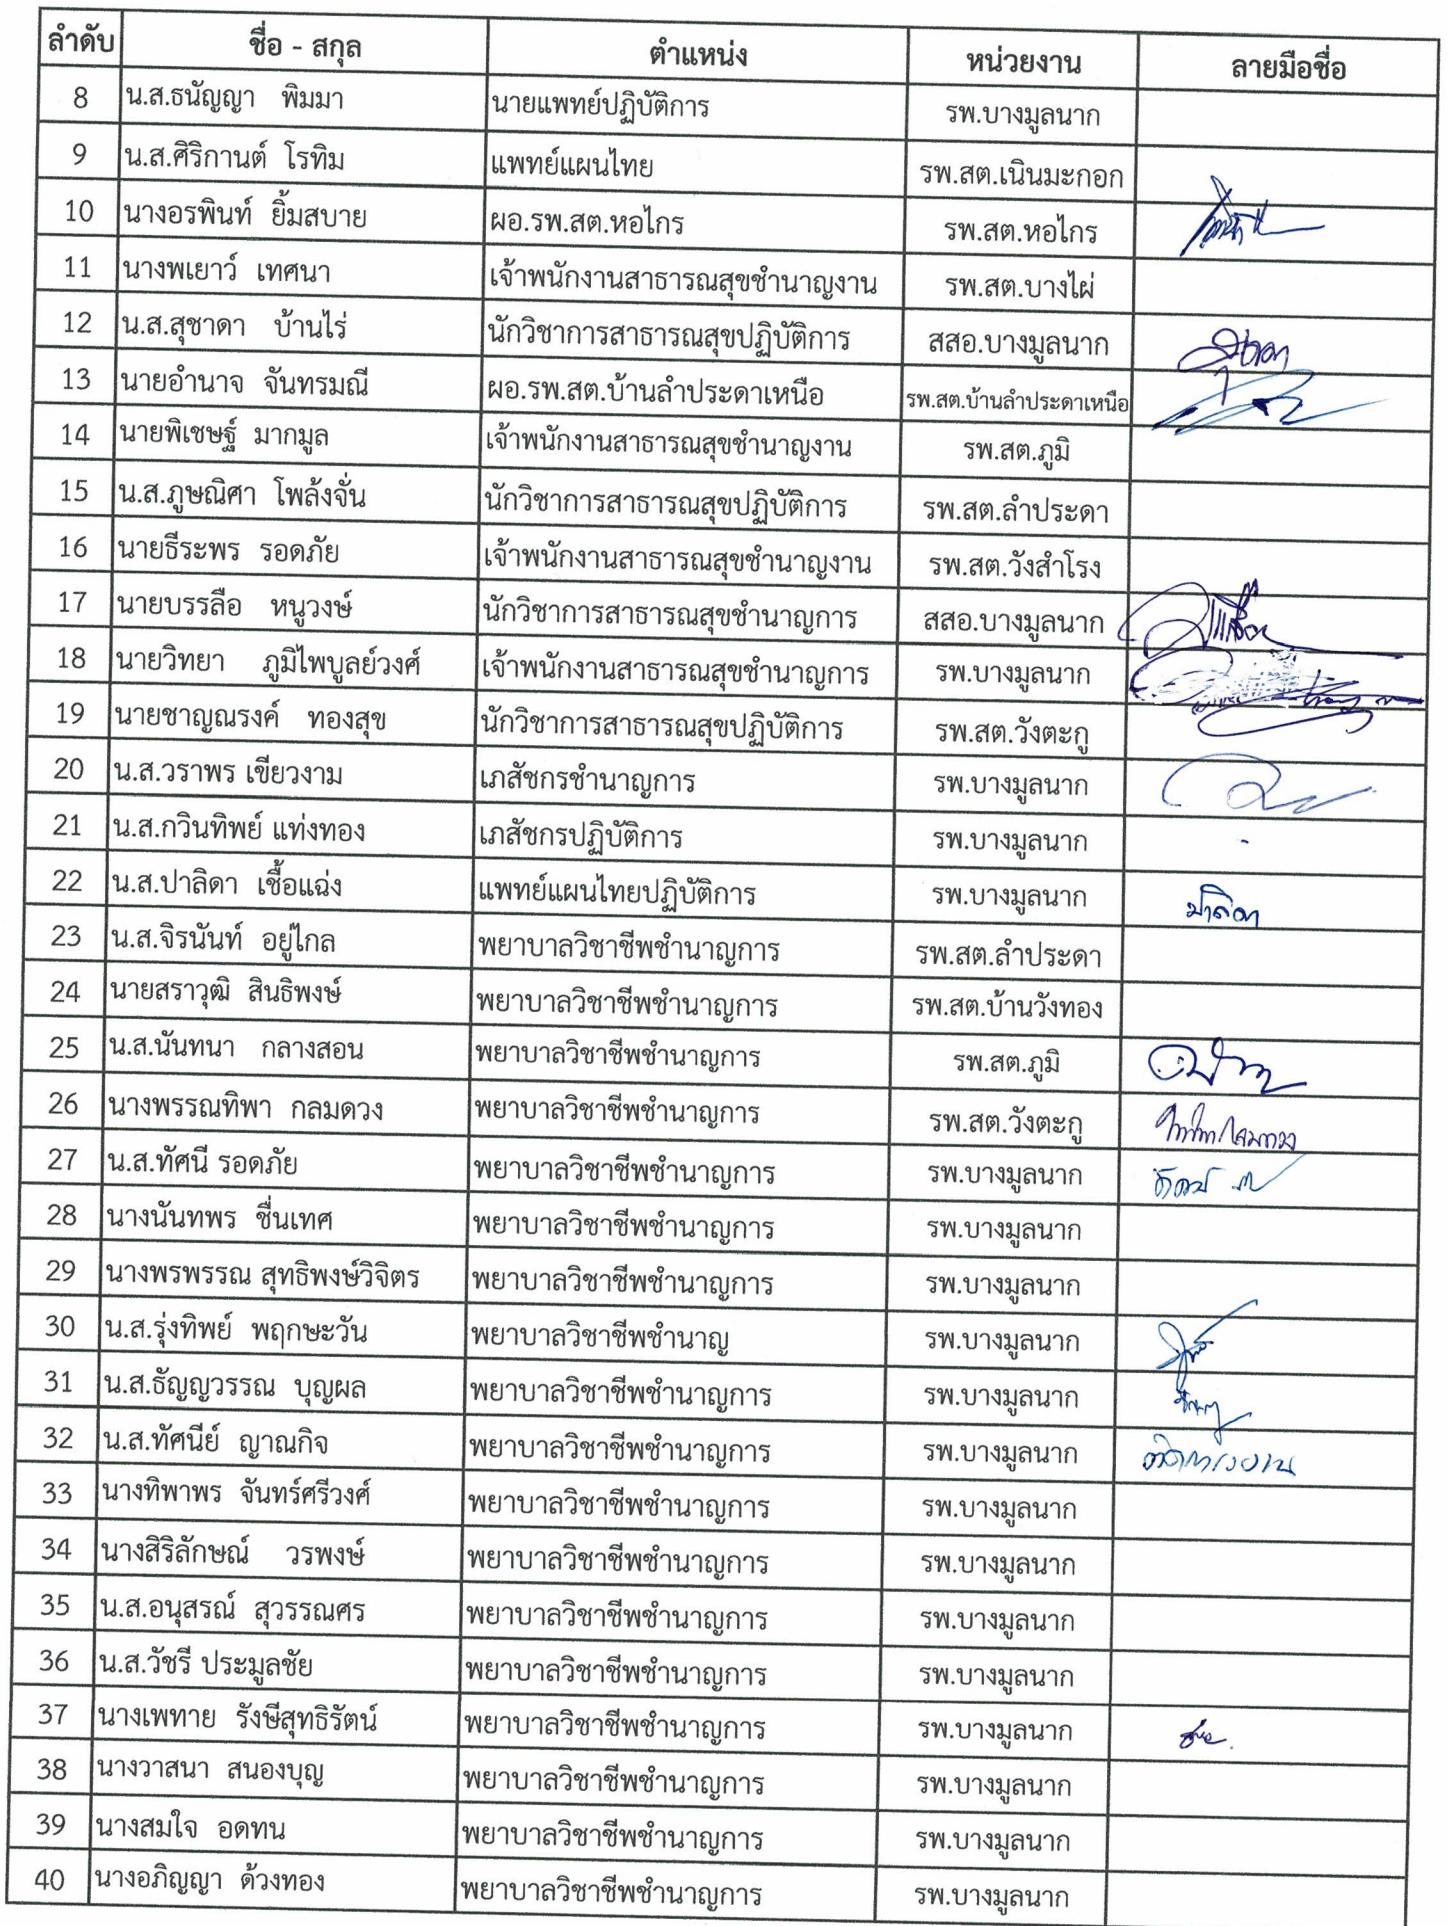 ลำดับ ชื่อ - สกุล ตำแหน่ง หน่วยงาน ลายมือชื่อ
8 น.ส.ธนัญญา พิมมา นายแพทย์ปฏิบัติการ รพ.บางมูลนาก
9 น.ส.ศิริกานต์ โรทิม แพทย์แผนไทย รพ.สต.เนินมะกอก
10 นางอรพินท์ ยิ้มสบาย ผอ.รพ.สต.หอไกร รพ.สต.หอไกร
11 นางพเยาว์ เทศนา เจ้าพนักงานสาธารณสุขชำนาญงาน รพ.สต.บางไผ่
12 น.ส.สุชาดา บ้านไร่ นักวิชาการสาธารณสุขปฏิบัติการ สสอ.บางมูลนาก สุชาดา
13 นายอำนาจ จันทรมณี ผอ.รพ.สต.บ้านลำประดาเหนือ รพ.สต.บ้านลำประดาเหนือ
14 นายพิเชษฐ์ มากมูล เจ้าพนักงานสาธารณสุขชำนาญงาน รพ.สต.ภูมิ
15 น.ส.ภูษณิศา โพล้งจั่น นักวิชาการสาธารณสุขปฏิบัติการ รพ.สต.ลำประดา
16 นายธีระพร รอดภัย เจ้าพนักงานสาธารณสุขชำนาญงาน รพ.สต.วังสำโรง
17 นายบรรลือ หนูวงษ์ นักวิชาการสาธารณสุขชำนาญการ สสอ.บางมูลนาก
18 นายวิทยา ภูมิไพบูลย์วงศ์ เจ้าพนักงานสาธารณสุขชำนาญการ รพ.บางมูลนาก
19 นายชาญณรงค์ ทองสุข นักวิชาการสาธารณสุขปฏิบัติการ รพ.สต.วังตะกู
20 น.ส.วราพร เขียวงาม เภสัชกรชำนาญการ รพ.บางมูลนาก
21 น.ส.กวินทิพย์ แท่งทอง เภสัชกรปฏิบัติการ รพ.บางมูลนาก -
22 น.ส.ปาลิดา เชื้อแฉ่ง แพทย์แผนไทยปฏิบัติการ รพ.บางมูลนาก ปาลิดา
23 น.ส.จิรนันท์ อยู่ไกล พยาบาลวิชาชีพชำนาญการ รพ.สต.ลำประดา
24 นายสราวุฒิ สินธิพงษ์ พยาบาลวิชาชีพชำนาญการ รพ.สต.บ้านวังทอง
25 น.ส.นันทนา กลางสอน พยาบาลวิชาชีพชำนาญการ รพ.สต.ภูมิ
26 นางพรรณทิพา กลมดวง พยาบาลวิชาชีพชำนาญการ รพ.สต.วังตะกู
27 น.ส.ทัศนี รอดภัย พยาบาลวิชาชีพชำนาญการ รพ.บางมูลนาก
28 นางนันทพร ชื่นเทศ พยาบาลวิชาชีพชำนาญการ รพ.บางมูลนาก
29 นางพรพรรณ สุทธิพงษ์วิจิตร พยาบาลวิชาชีพชำนาญการ รพ.บางมูลนาก
30 น.ส.รุ่งทิพย์ พฤกษะวัน พยาบาลวิชาชีพชำนาญ รพ.บางมูลนาก
31 น.ส.ธัญญวรรณ บุญผล พยาบาลวิชาชีพชำนาญการ รพ.บางมูลนาก
32 น.ส.ทัศนีย์ ญาณกิจ พยาบาลวิชาชีพชำนาญการ รพ.บางมูลนาก
33 นางทิพาพร จันทร์ศรีวงศ์ พยาบาลวิชาชีพชำนาญการ รพ.บางมูลนาก
34 นางสิริลักษณ์ วรพงษ์ พยาบาลวิชาชีพชำนาญการ รพ.บางมูลนาก
35 น.ส.อนุสรณ์ สุวรรณศร พยาบาลวิชาชีพชำนาญการ รพ.บางมูลนาก
36 น.ส.วัชรี ประมูลชัย พยาบาลวิชาชีพชำนาญการ รพ.บางมูลนาก
37 นางเพทาย รังษีสุทธิรัตน์ พยาบาลวิชาชีพชำนาญการ รพ.บางมูลนาก
38 นางวาสนา สนองบุญ พยาบาลวิชาชีพชำนาญการ รพ.บางมูลนาก
39 นางสมใจ อดทน พยาบาลวิชาชีพชำนาญการ รพ.บางมูลนาก
40 นางอภิญญา ด้วงทอง พยาบาลวิชาชีพชำนาญการ รพ.บางมูลนาก